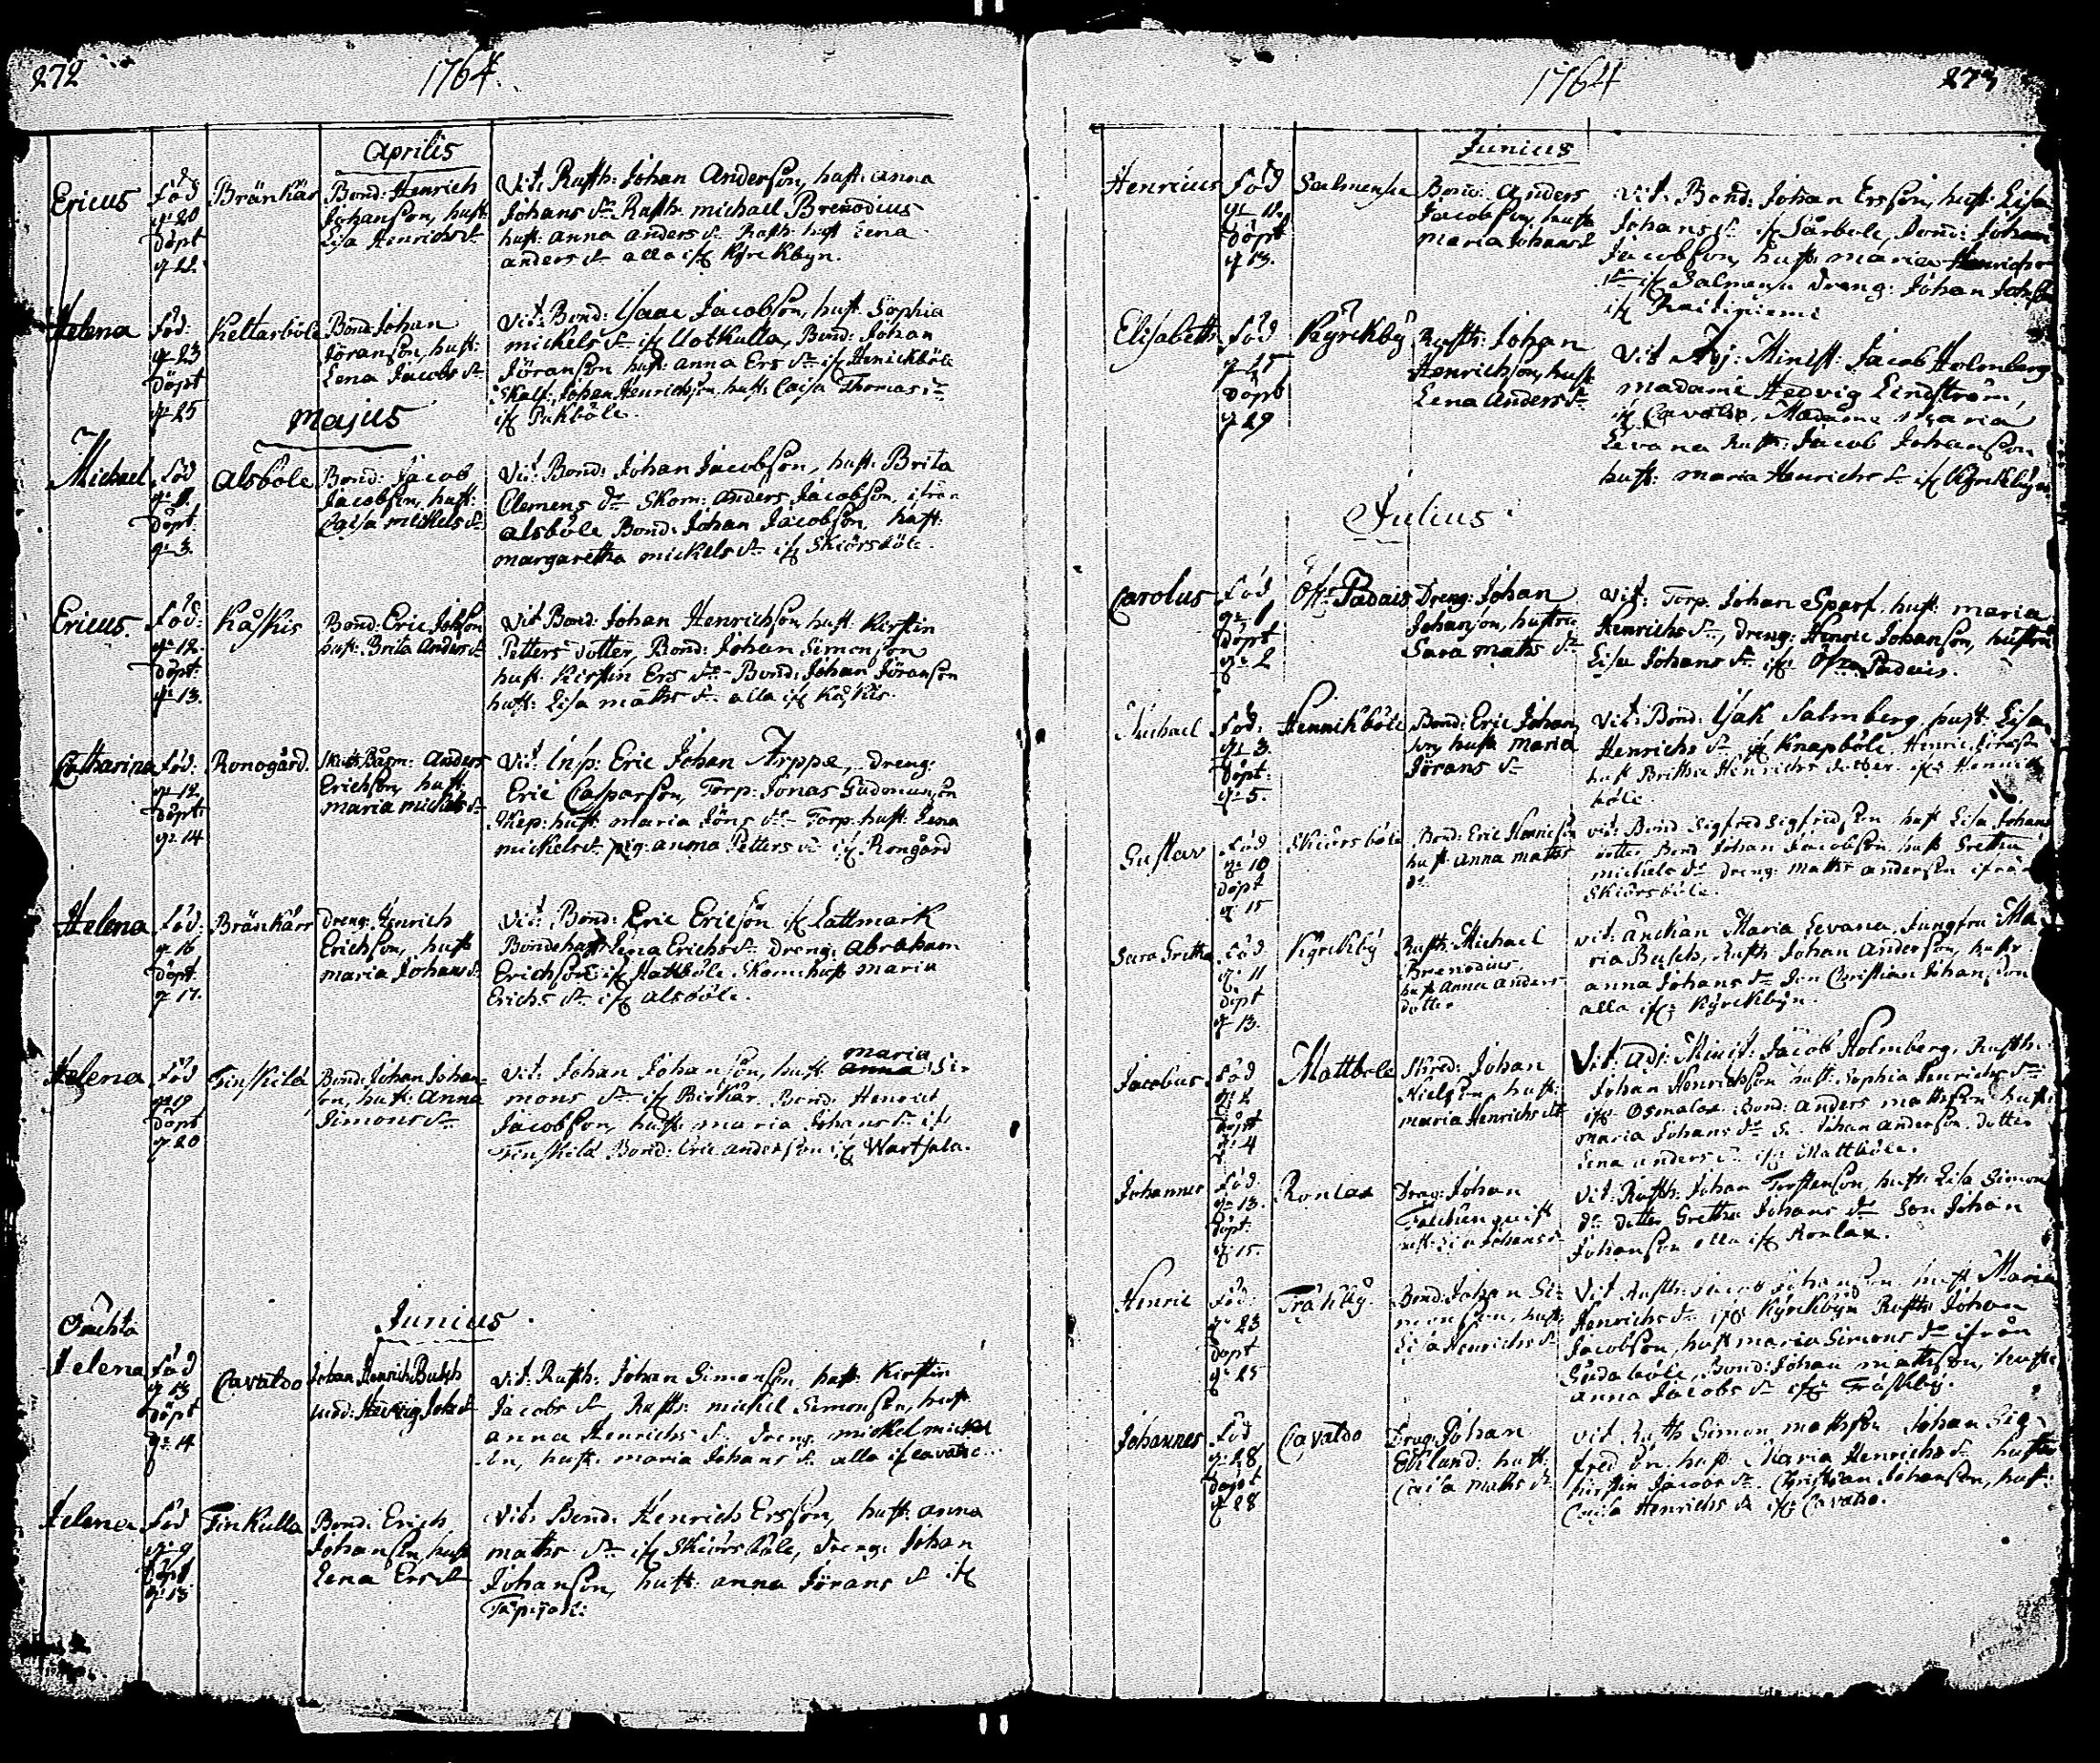 272
1764.
Aprilis
Ericus
Född
d. 20
Döpt
d. 22.
Bränkär
Bond: Henrich
Johanson, hust:
Lisa Henrichs dr
Vit: Rusth: Johan Anderson, hust: anna
Johans dr Rusth: michael Brenodius
hust: anna anders dr Rusth: hust Lena
anders dr alla ifr Kyrckbyn.
Helena
Föd:
d. 23
Döpt
d. 25
Kettarböle
Bond: Johan
Jöranson, hust:
Lena Jacobs dr
Vit: Bond: Isaac Jacobson, hust: Sophia
mickels dr ifr Uotkulla, Bond: Johan
Jöranson hust: anna Ers dr ifr Henickböle
Skalf: Johan Henrichson, hust: Caisa Thomas dr
ifr Pukböle.
Majus
Michael
Föd
Döpt.
d. 3.
Alsböle
Bond: Jacob
Jacobson, hust:
Caisa mickels dr
Vit: Bond: Johan Jacobson, hust: Brita
Clemens dr Skom: anders Jacobson, ifrån
alsböle Bond: Johan Jacobson, hust:
margaretha mickels dr ifr Skiörsböle.
Ericus.
Föd:
d. 12.
Döpt:
d. 13.
Kåskis
Bond: Eric Johson
hust: Brita Anders dr
Vit Bond: Johan Henrichson hust: Kirstin
Petters dotter, Bond: Johan Simonson
hust: Kirstin Ers dr Bond: Johan Jöranson
hust: Lisa maths dr alla ifr Kåskis.
Catharina
Föd:
d. 12.
Döpt:
d. 14
Ronogård
Anders
Erichson, hust:
maria mickels dr
Vit: Insp: Eric Johan Arppe, dreng:
Eric Casparson, Torp: Jonas Gudmunson
Skep: hust: maria Jöns dr Torp: hust: Lena
mickels dr pig: anna Petters dr ifr Rongård
Helena
Föd:
d. 16
Döpt:
d. 17.
Bränkärr
Dreng: Henrich
Erichson, hust
maria Johans dr
Vit: Bond: Eric Ericson ifr Lattmark
Bondehust: Lena Erichs dr dreng: Abraham
Erichson ifr Mattböle. Skom: hust maria
Erichs dr ifr alsböle.
Helena
Föd
d. 19
Döpt
d. 20
Finskilä
Bond: Johan Johan-
son, hust: Anna
Simons dr
maria
Vit: Johan Johanson, hust: anna Si-
mons dr ifr Birkär. Bond: Henrich
Jacobson, hust: maria Johans dr ifr
Finskilä Bond: Eric anderson ifr Wartsala.
Junius.
Oächta
Helena
Föd
d. 13
Döpt
d. 14
Cavaldo
Johan Henrich Busch
Vit: Rusth: Johan Simonson hust: Kirstin
Jacobs dr Rusth: mickel Simonson, hust:
anna Henrichs dr dreng: mickel mickel
son, hust: maria Johans dr alla ifr Cavaldo.
Helena
Föd
d. 9
Döpt
d. 13
Finkulla
Bond: Erich
Johanson, hust
Lena Ers dr
Vit: Bond: Henrich Ersson, hust: anna
maths dr ifr Skiörsböle, dreng: Johan
Johanson, hust: anna Jörans dr ifr

1764
273
Junius
Henricus
Föd
d. 12.
Döpt
d. 13.
Salmensu
Bond: Anders
Jacobson, hust
maria Johans dr
Vit: Bond: Johan Ersson, hust: Lisa
Johans dr ifr Särböle, Bond: Johan
Jacobson, hust: maria Henrichs
dr ifr Salmensu dreng: Johan Johson
ifr Raitiniemi
Elisabeth
Föd
d. 25
Döpt
d. 29
Kyrckby
Rusth: Johan
Henrichson, hust
Lena Anders dr
Vit Adj: Minist: Jacob Holmberg
madame Hedvig Lindström,
ifr Cavaldo, Madame Maria
Levana Rusth: Jacob Johanson
hust: maria Henrichs dr ifr Kyrckbyn
Julius.
Carolus
Föd
d. 1
Döpt
d. 2
Öfre Padais
Dreng: Johan
Johanson, hustru
Sara maths dr
Vit: Torp. Johan Sparf. hust: maria
Henrichs dr, dreng: Henric Johanson, hustru
Lisa Johans dr ifr Öfre Padais.
Michael
Föd:
d. 3.
Döpt:
d. 5.
Hennikböle
Bond: Eric Johan
son, hust maria
Jörans dr
Vit: Bond: Isak Salmberg, hust: Lisa
Henrichs dr ifr Knapböle. Henric Jöranson
hust Brittha Henrichs dotter ifr Hennick
böle.
Gustav
Föd
d. 10
Döpt
d. 15
Skiörsböle
Bond: Eric Henricson
hust anna maths
dr
Vit: Bond Sigfred Sigfredson hust Lisa Johans
dotter Bond Johan Jacobson hust Gretha
mickels dr dreng: Maths anderson ifrån
Skiörsböle.
Sara Gretha
Föd
d. 11
döpt
d. 13.
Kyrckby
Rusth: Michael
Brenodius
hust Anna anders
dotter
Vit: änckan Maria Levana, Jungfru Ma-
ria Busch, Rusth: Johan Anderson, hustr
anna Johans dr Christian Johanson
alla ifr: Kyrckbyn.
Jacobus
Föd
d. 2
döpt
d. 4
Mattböle
Skred: Johan
Nielson, hust:
maria Henrichs dr
Vit: Adj: Minist: Jacob Holmberg. Rusth:
Johan Henrichson hust: Sophia Henrichs dr
ifr Osmalax. Bond: anders mattsson hust:
maria Johans dr S. Johan anderson, dotter
Lena anders dr ifr Mattböle.
Johannes
Föd.
d. 13.
döpt
d. 15.
Ronlax
Drag: Johan
Vit: Rusth: Johan Torstenson, hust: Lisa Simons
dr dotter Gretha Johans dr Son Johan
Johanson alla ifr Ronlax.
Henric
Föd.
d. 23
döpt
d. 25
Träskby
Bond: Johan Si-
monson, hust:
Lisa Henrichs dr
Vit Rusth: Jacob Johanson hust Maria
Henrichs dr ifr Kyrckbyn Rusth: Johan
Jacobson, hust maria Simons dr ifrån
Gudaböle, Bond: Johan mathson, hust:
anna Jacobs dr ifr Träskby.
Johannes
Föd
d. 28
Döpt
d. 28
Cavaldo
Drag: Johan
Edlund: hust:
Caisa maths dr
Vit: Rusth Simon mathson Johan Sig-
fredson. hust Maria Henrichs dr hustr
kirstin Jacobs dr Christian Johanson, hust:
Caisa Henrichs dr ifr Cavaldo.